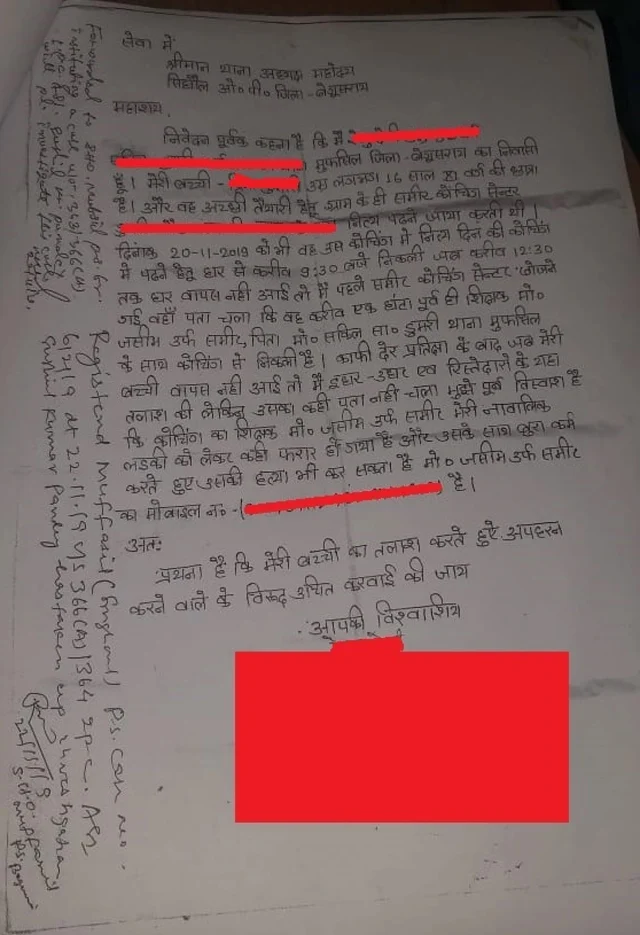 सेवा में,
श्रीमान थाना अध्यक्ष महोदय
सिंघौल ओ० पी० जिला - बेगूसराय
महाशय,
निवेदन पूर्वक कहना है कि मैं
मुफसिल जिला - बेगूसराय का निवासी
हूँ। मेरी बच्ची - उम्र लगभग 16 साल वर्ग की छात्रा
है। और वह अच्छी तैयारी हेतु ग्राम के ही समीर कोचिंग सेन्टर
नित्य पढ़ने जाया करती थी।
दिनांक 20-11-2019 को भी वह उस कोचिंग में नित्य दिन की कोचिंग
में पढ़ने हेतु घर से करीब 9:30 बजे निकली जब करीब 12:30
तक घर वापस नही आई तो मैं पहले समीर कोचिंग सेन्टर खोजने
गई वहाँ पता चला कि वह करीब एक घंटा पूर्व ही शिक्षक मो०
जसीम उर्फ समीर, पिता मो० सकिल सा० डुमरी थाना मुफसिल
के साथ कोचिंग से निकली है। काफी देर प्रतिक्षा के बाद जब मेरी
बच्ची वापस नही आई तो मैं इधर-उधर एवं रिस्तेदारो के यहा
तलाश की लेकिन उसका कही पता नही चला मुझे पूर्ण विस्वाश है
कि कोचिंग का शिक्षक मो० जसीम उर्फ समीर मेरी नावालिक
लडकी को लेकर कही फरार हो गया है और उसके साथ बुरा कर्म
करते हुए उसकी हत्या भी कर सकता है मो० जसीम उर्फ समीर
का मोबाइल न० - ( ) है।
अतः
प्रथना है कि मेरी बच्ची का तलाश करते हुए अपहरन
करने वाले के विरूद्ध उचित करवाई की जाय
आपकी विश्वाशिय
Forwarded to SHO Muffasil P.S. for
instituting a case u/s 363/366(A)
Registered Muffasil (Singhaul) P.S. Case no.
621/19 dt 22.11.19 u/s 366(A)/364 IPC. ASI
Sushil Kumar Pandey has taken up investigation
22/11/19
S.H.O. Muffasil